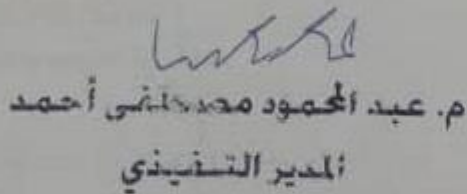 م. عبد المحمود مصطفى أحمد
المدير التنفيذي